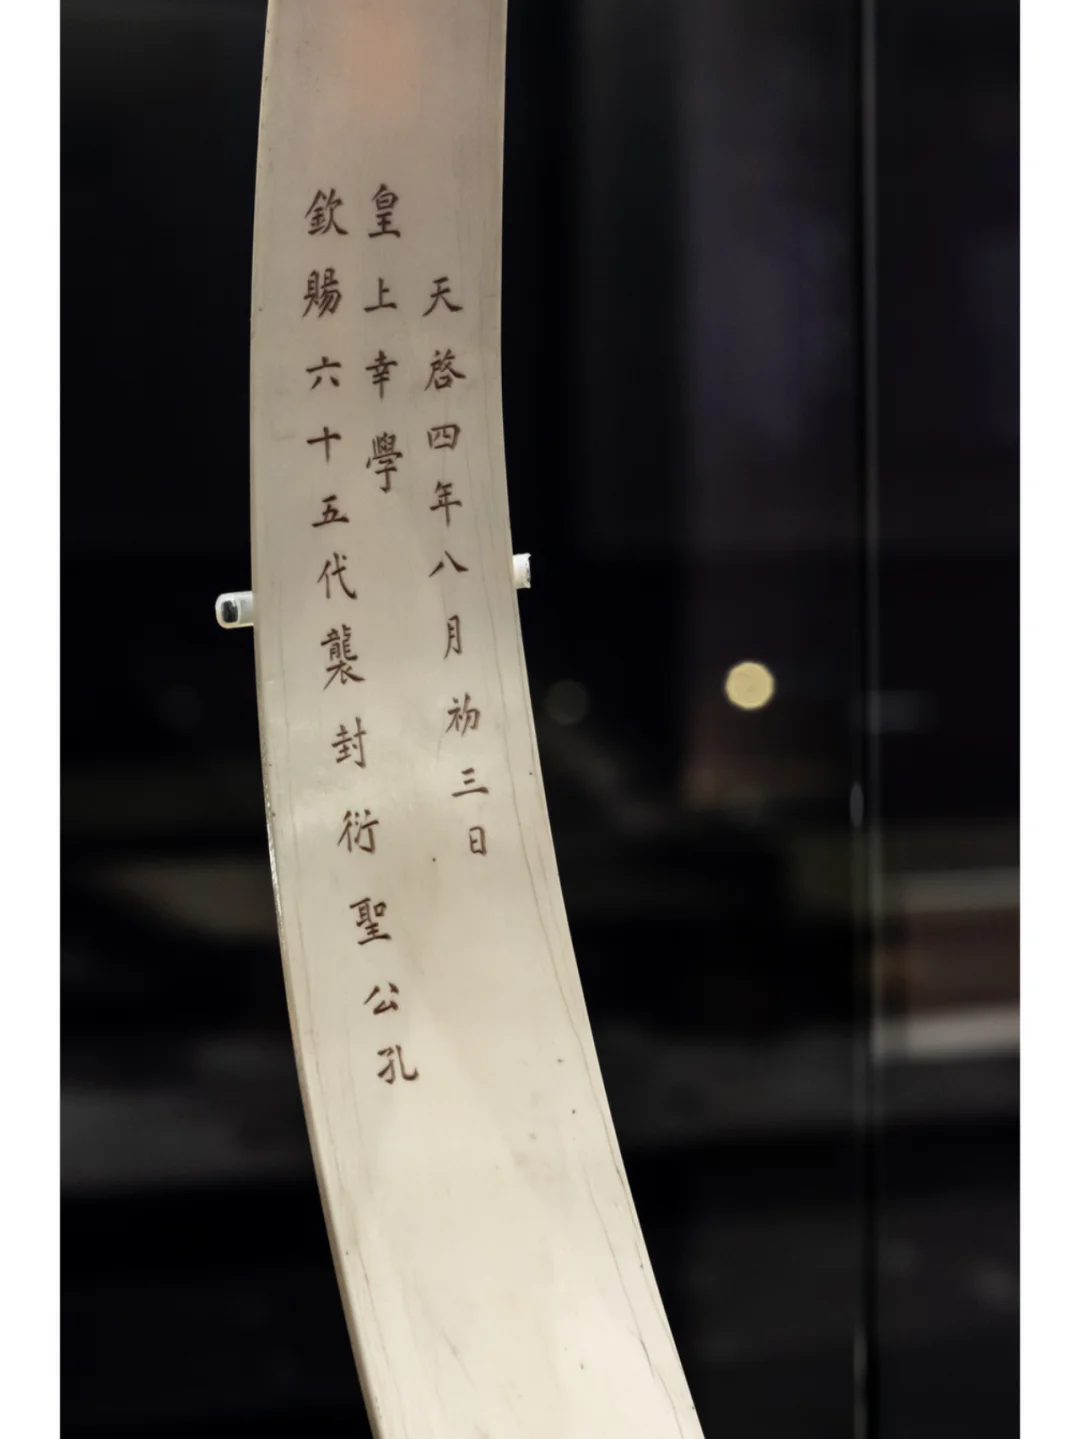 天啓四年八月初三日
皇上幸學
欽賜六十五代襲封衍聖公孔